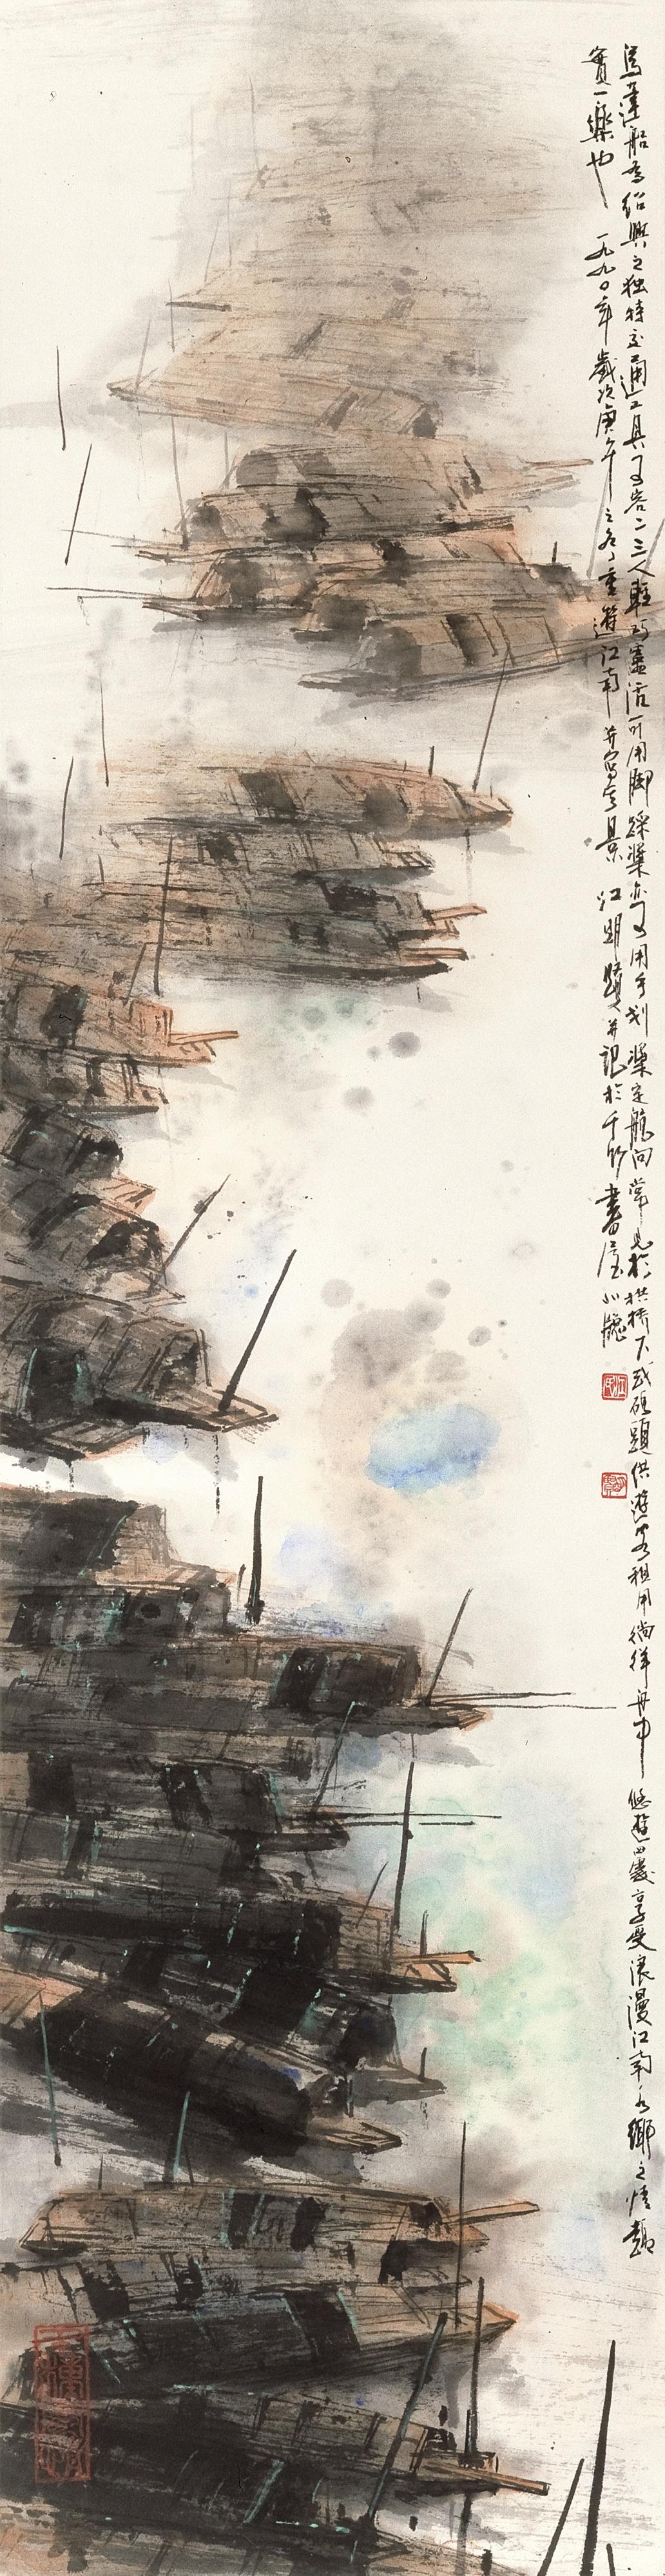 烏篷船為紹興之独特交通工具可容二三人輕巧靈活可用脚踩槳亦可用手划槳定航向常見於拱橋下或碼頭供遊客租用徜徉舟中悠遊四處享受浪漫江南水鄉之情趣
實一樂也 一九九〇年歲次庚午之冬重遊江南並寫其景 江明賢並記於千竹書屋北牕